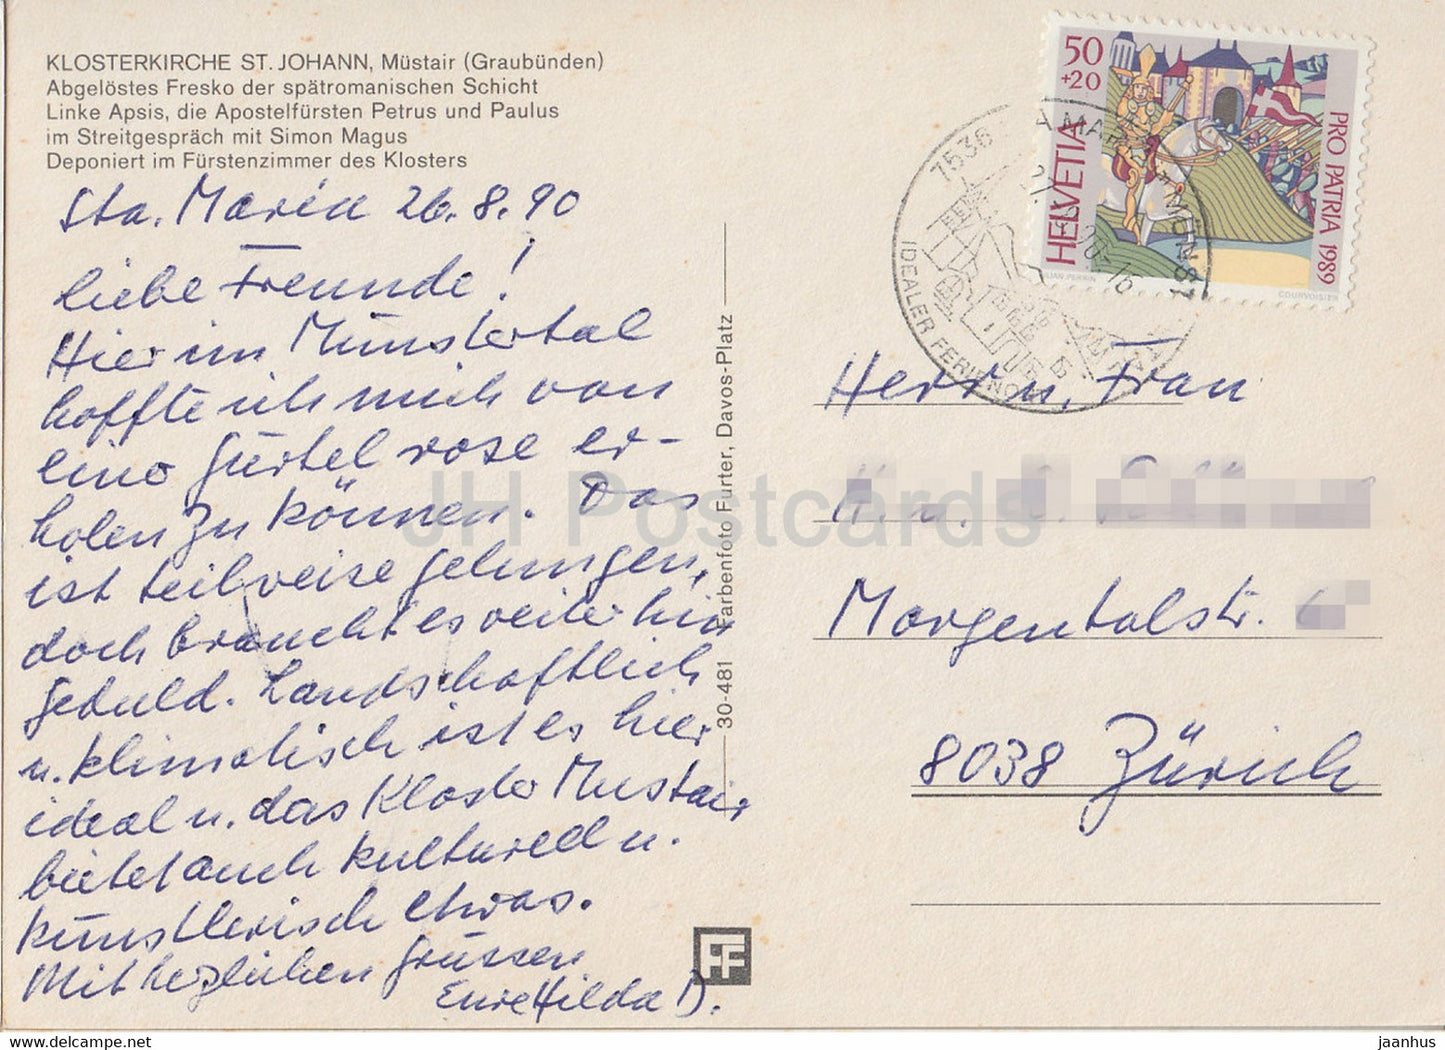 KLOSTERKIRCHE ST. JOHANN, Müstair (Graubünden)
Abgelöstes Fresko der spätromanischen Schicht
Linke Apsis, die Apostelfürsten Petrus und Paulus
im Streitgespräch mit Simon Magus
Deponiert im Fürstenzimmer des Klosters
Sta. Maria 26.8.90
Liebe Freunde!
Hier im Münstertal
hoffte ich mich von
eine Gürtelrose er-
holen zu können. Das
ist teilweise gelungen,
doch braucht es weiterhin
Geduld. Landschaftlich
u. klimatisch ist es hier
ideal u. das Kloster Mustair
bietet auch kulturell u.
künstlerisch etwas.
Mit herzlichen Grüssen
Eure Hilda D.
30-481 Farbenfoto Furter, Davos-Platz
FF
50
+20
HELVETIA
PRO PATRIA 1989
COURVOISIER
7536
IDEALER FERIENO
Herrn, Frau
Morgentalstr.
8038 Zürich
JH Postcards
www.delcampe.net
jaanhus